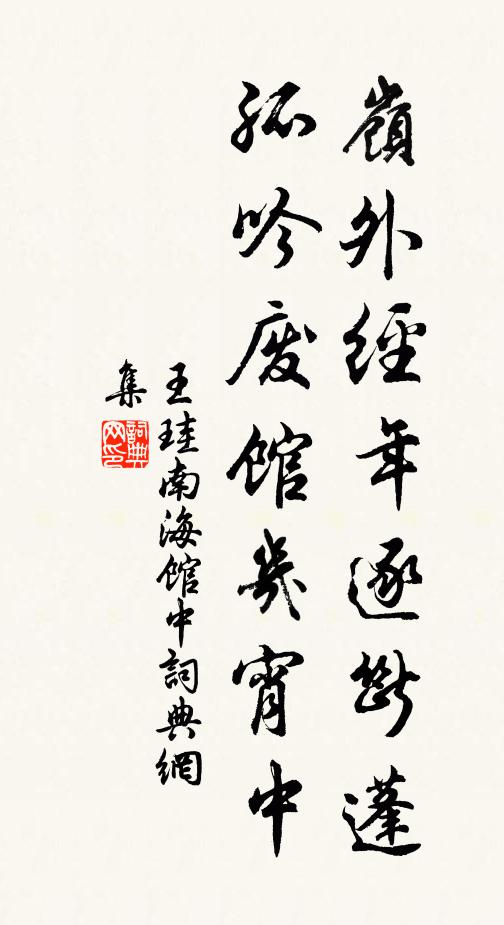 嶺外經年逐斷蓬
孤吟廢館幾宵中
王珪南海館中詞典網
集
詞典
网印